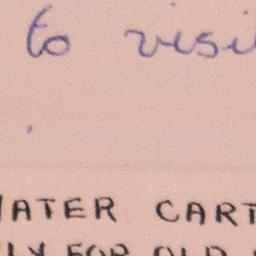 to visi
WATER CART
LY FOR OLD